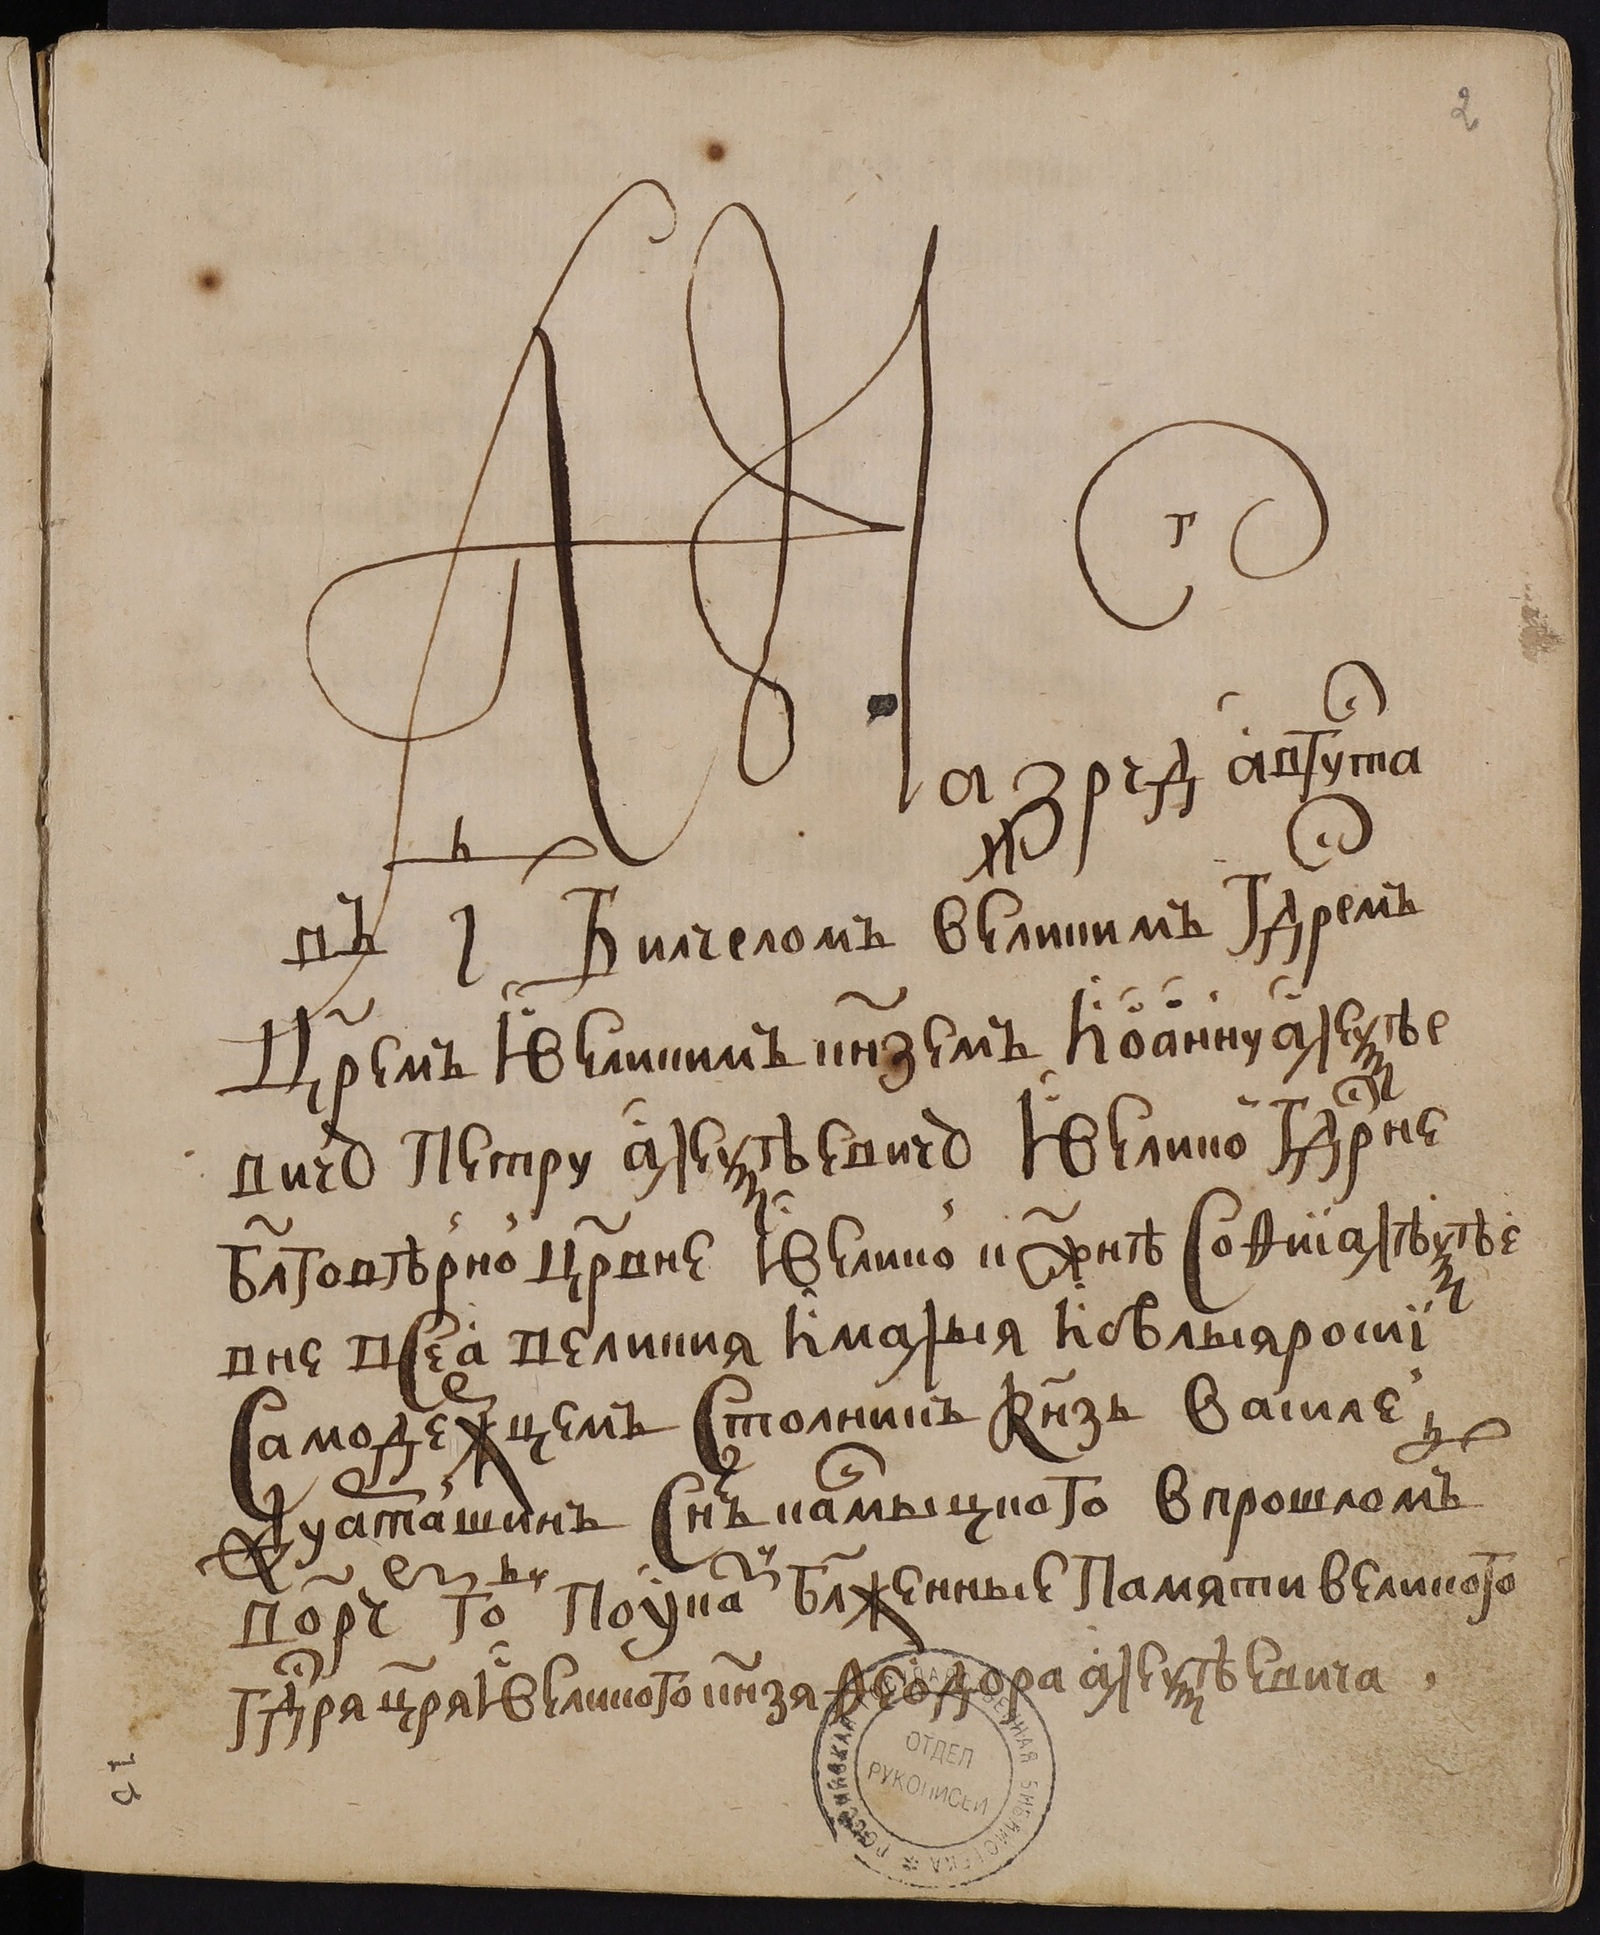 2
Лѣта ҂зрчд августа
въ і День Билчеломъ великимъ гдремъ
црремъ и великимъ кнземъ Иоанну алеѯѣе
вичю Петру алеѯѣевичю и великой гдрне
блговѣрной црвне и великой кнѧжнѣ Софиі алеѯѣе
вне всеа великия и малыя и бѣлыя росиі
самодержцемъ столникъ Кнзь василей
Дуаташинъ снъ камыцкого в прошломъ
во рч году по указу блаженные памяти великого
гдря цря и великого кнзя Ѳеодора алеѯѣевича
ОТДЕЛ
РУКОПИСЕЙ